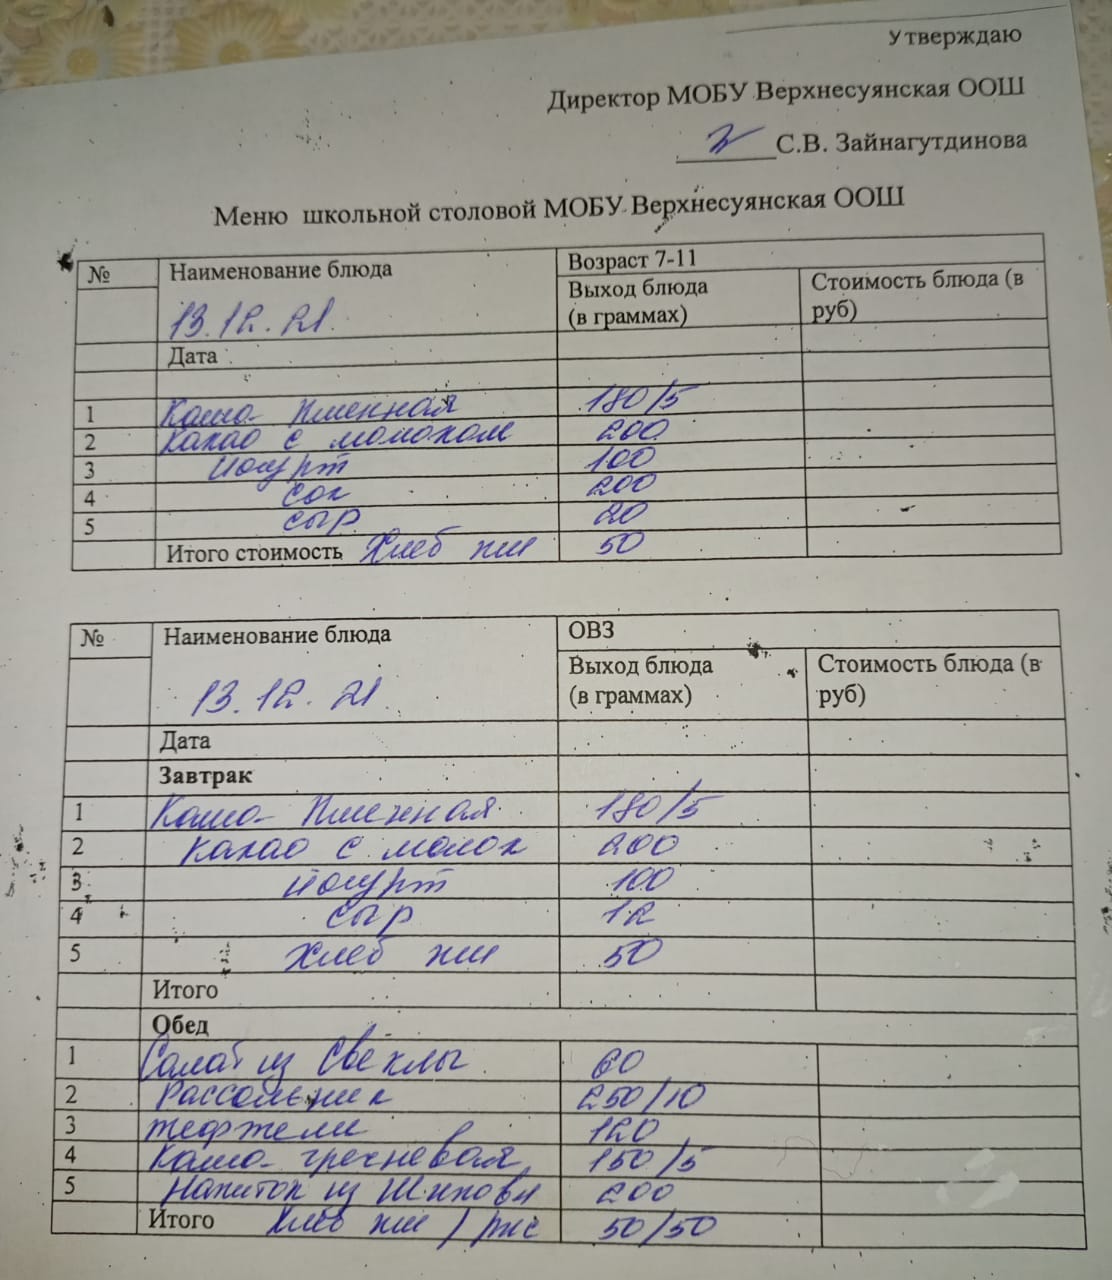 Утверждаю
Директор МОБУ Верхнесуянская ООШ
С.В. Зайнагутдинова
Меню школьной столовой МОБУ Верхнесуянская ООШ
№ Наименование блюда Возраст 7-11
Выход блюда (в граммах) Стоимость блюда (в руб)
13.12.21.
Дата
1 Каша Пшенная 180/5
2 Какао с молоком 200
3 Йогурт 100
4 Сок 200
5 сыр 20
Итого стоимость Хлеб пш 50
№ Наименование блюда ОВЗ
Выход блюда (в граммах) Стоимость блюда (в руб)
13.12.21
Дата
Завтрак
1 Каша Пшенная 180/5
2 Какао с молок 200
3 Йогурт 100
4 сыр 12
5 Хлеб пш 50
Итого
Обед
1 Салат из Свеклы 60
2 Рассольник 250/10
3 тефтели 120
4 Каша гречневая 150/5
5 Напиток из Шиповн 200
Итого Хлеб пш / рж 50/50